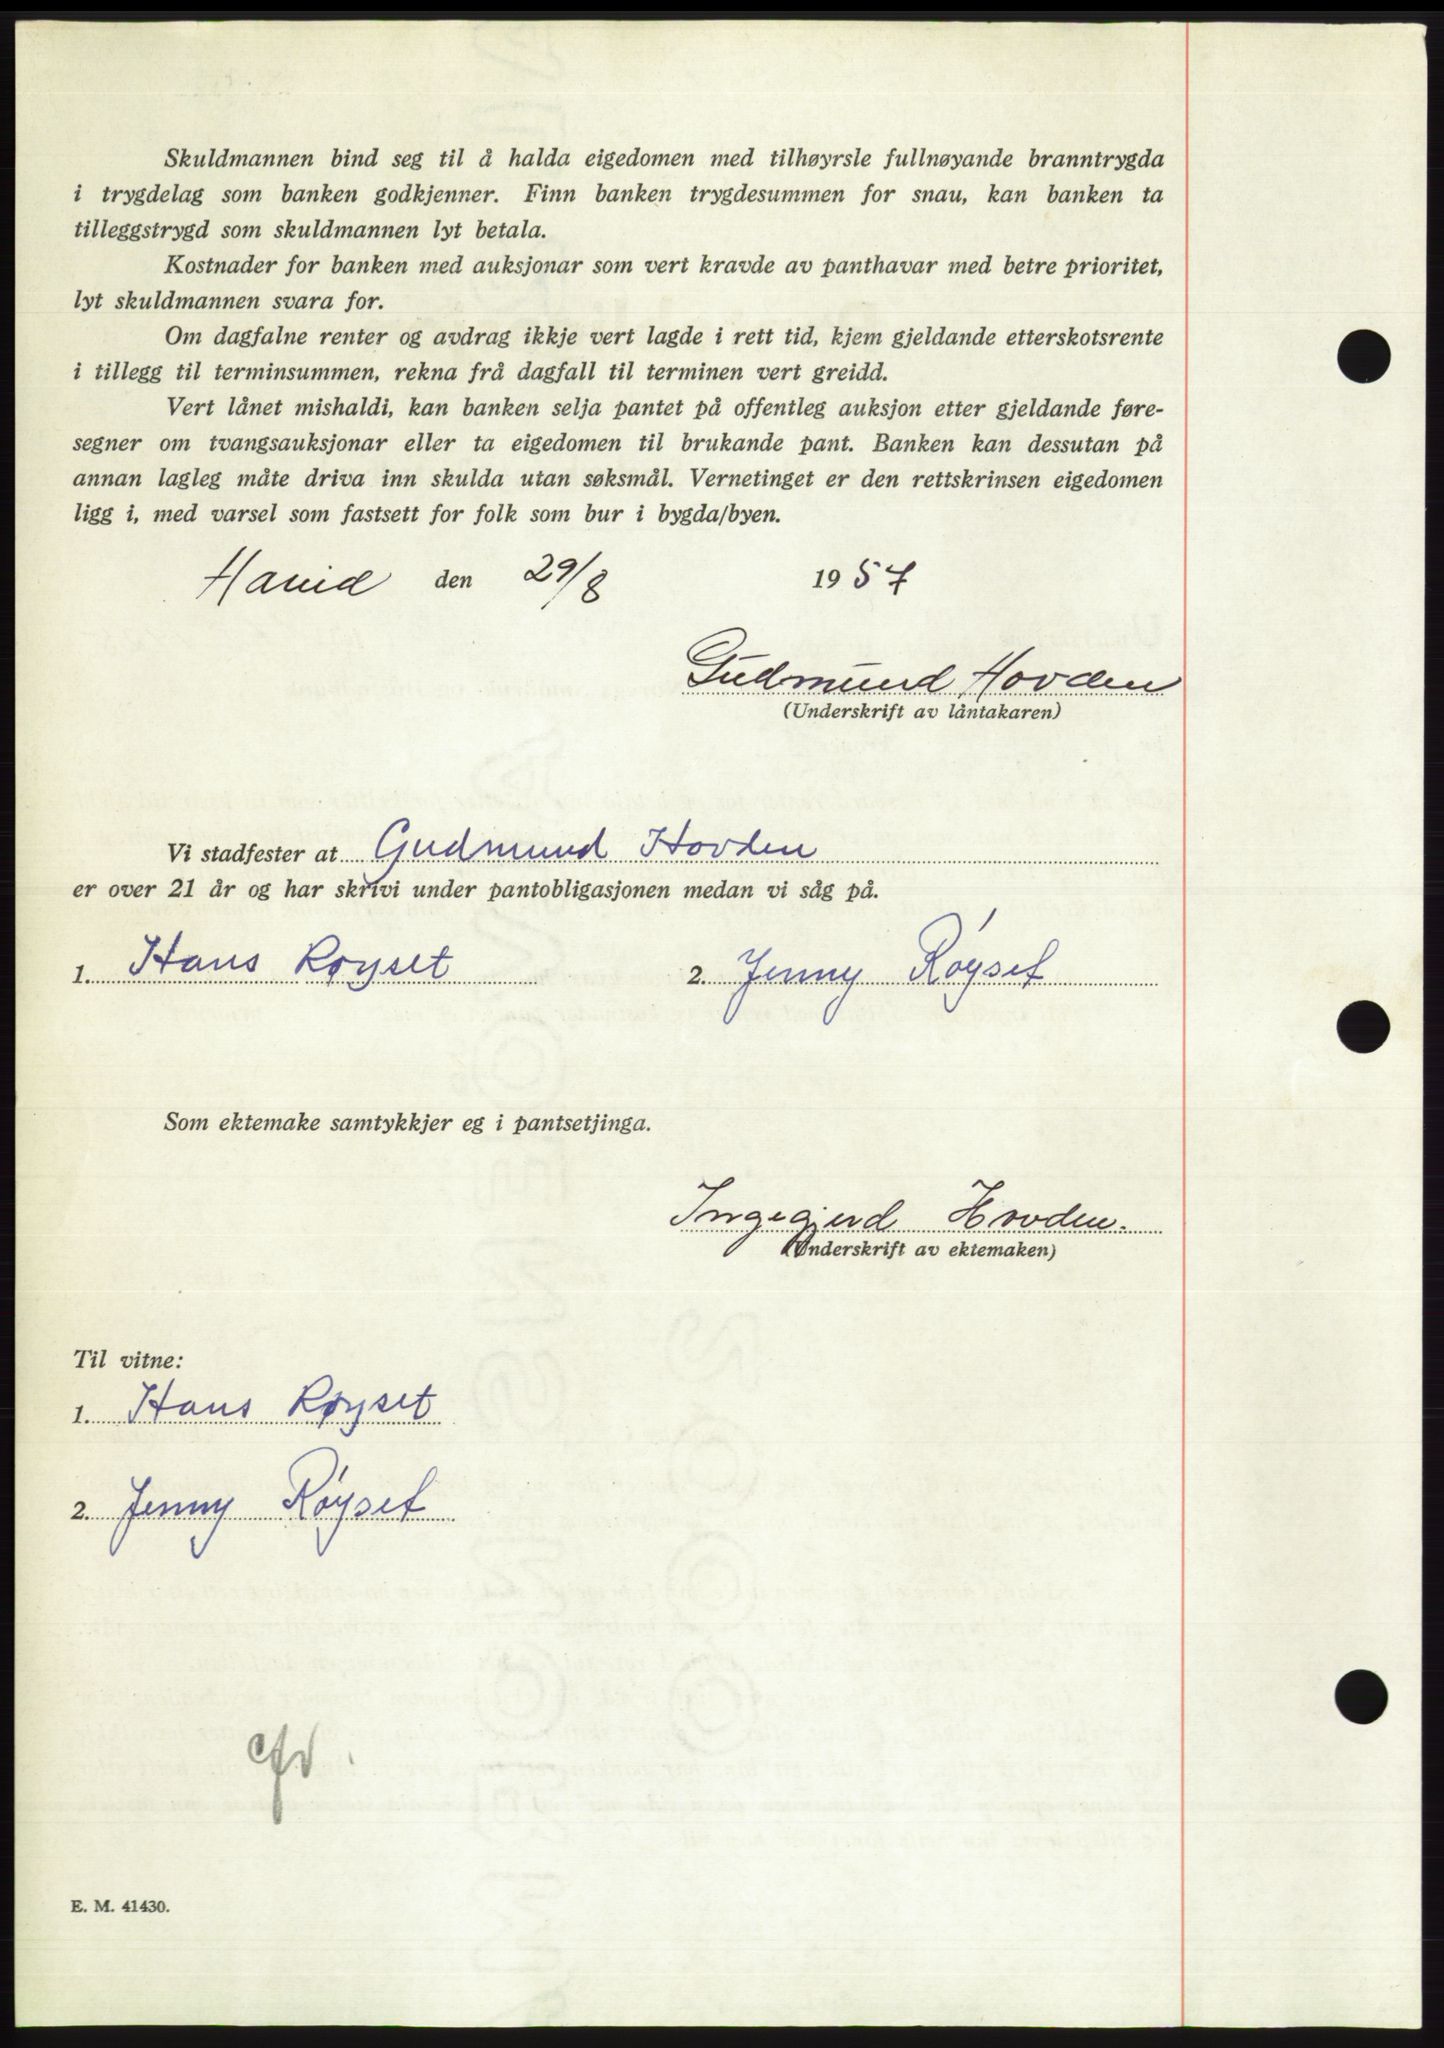 Skuldmannen bind seg til å halda eigedomen med tilhøyrsle fullnøyande branntrygda
i trygdelag som banken godkjenner. Finn banken trygdesummen for snau, kan banken ta
tilleggstrygd som skuldmannen lyt betala.
Kostnader for banken med auksjonar som vert kravde av panthavar med betre prioritet,
lyt skuldmannen svara for.
Om dagfalne renter og avdrag ikkje vert lagde i rett tid, kjem gjeldande etterskotsrente
i tillegg til terminsummen, rekna frå dagfall til terminen vert greidd.
Vert lånet mishaldi, kan banken selja pantet på offentleg auksjon etter gjeldande føre-
segner om tvangsauksjonar eller ta eigedomen til brukande pant. Banken kan dessutan på
annan lagleg måte driva inn skulda utan søksmål. Vernetinget er den rettskrinsen eigedomen
ligg i, med varsel som fastsett for folk som bur i bygda/byen.
Hareid den 29/8 1957
Gudmund Hovden
(Underskrift av låntakaren)
Vi stadfester at Gudmund Hovden
er over 21 år og har skrivi under pantobligasjonen medan vi såg på.
1. Hans Røyset 2. Jenny Røyset
Som ektemake samtykkjer eg i pantsetjinga.
Ingegjerd Hovden.
(Underskrift av ektemaken)
Til vitne:
1. Hans Røyset
2. Jenny Røyset
E. M. 41430.